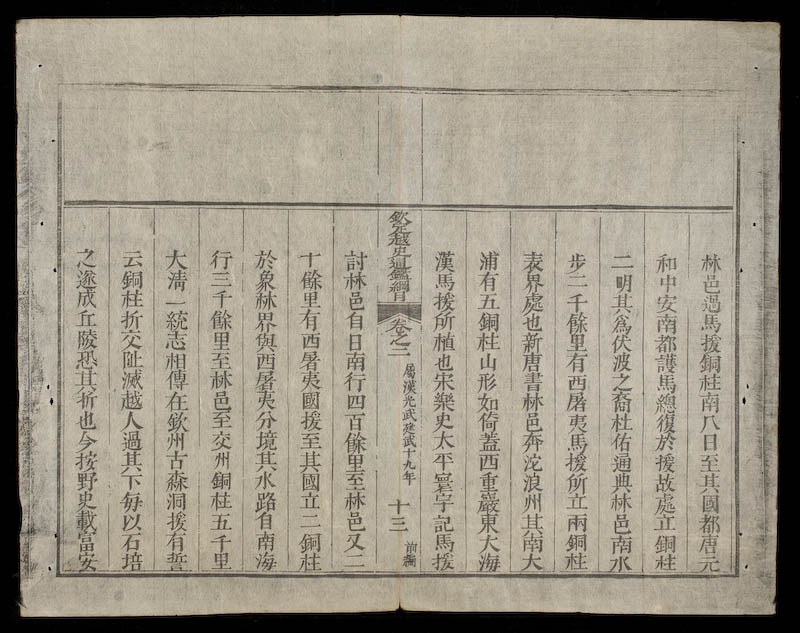 林邑過馬援銅柱南八日至其國都唐元
和中安南都護馬總復於援故處立銅柱
二明其爲伏波之裔杜佑通典林邑南水
步二千餘里有西屠夷馬援所立兩銅柱
表界處也新唐書林邑奔沱浪州其南大
浦有五銅柱山形如倚蓋西重巖東大海
漢馬援所植也宋樂史太平寰宇記馬援
欽定越史通鑑綱目 卷之二 屬漢光武建武十九年 十三 前編
討林邑自日南行四百餘里至林邑又二
十餘里有西屠夷國援至其國立二銅柱
於象林界與西屠夷分境其水路自南海
行三千餘里至林邑至交州銅柱五千里
大淸一統志相傳在欽州古森洞援有誓
云銅柱折交趾滅越人過其下每以石培
之遂成丘陵恐其折也今按野史載富安